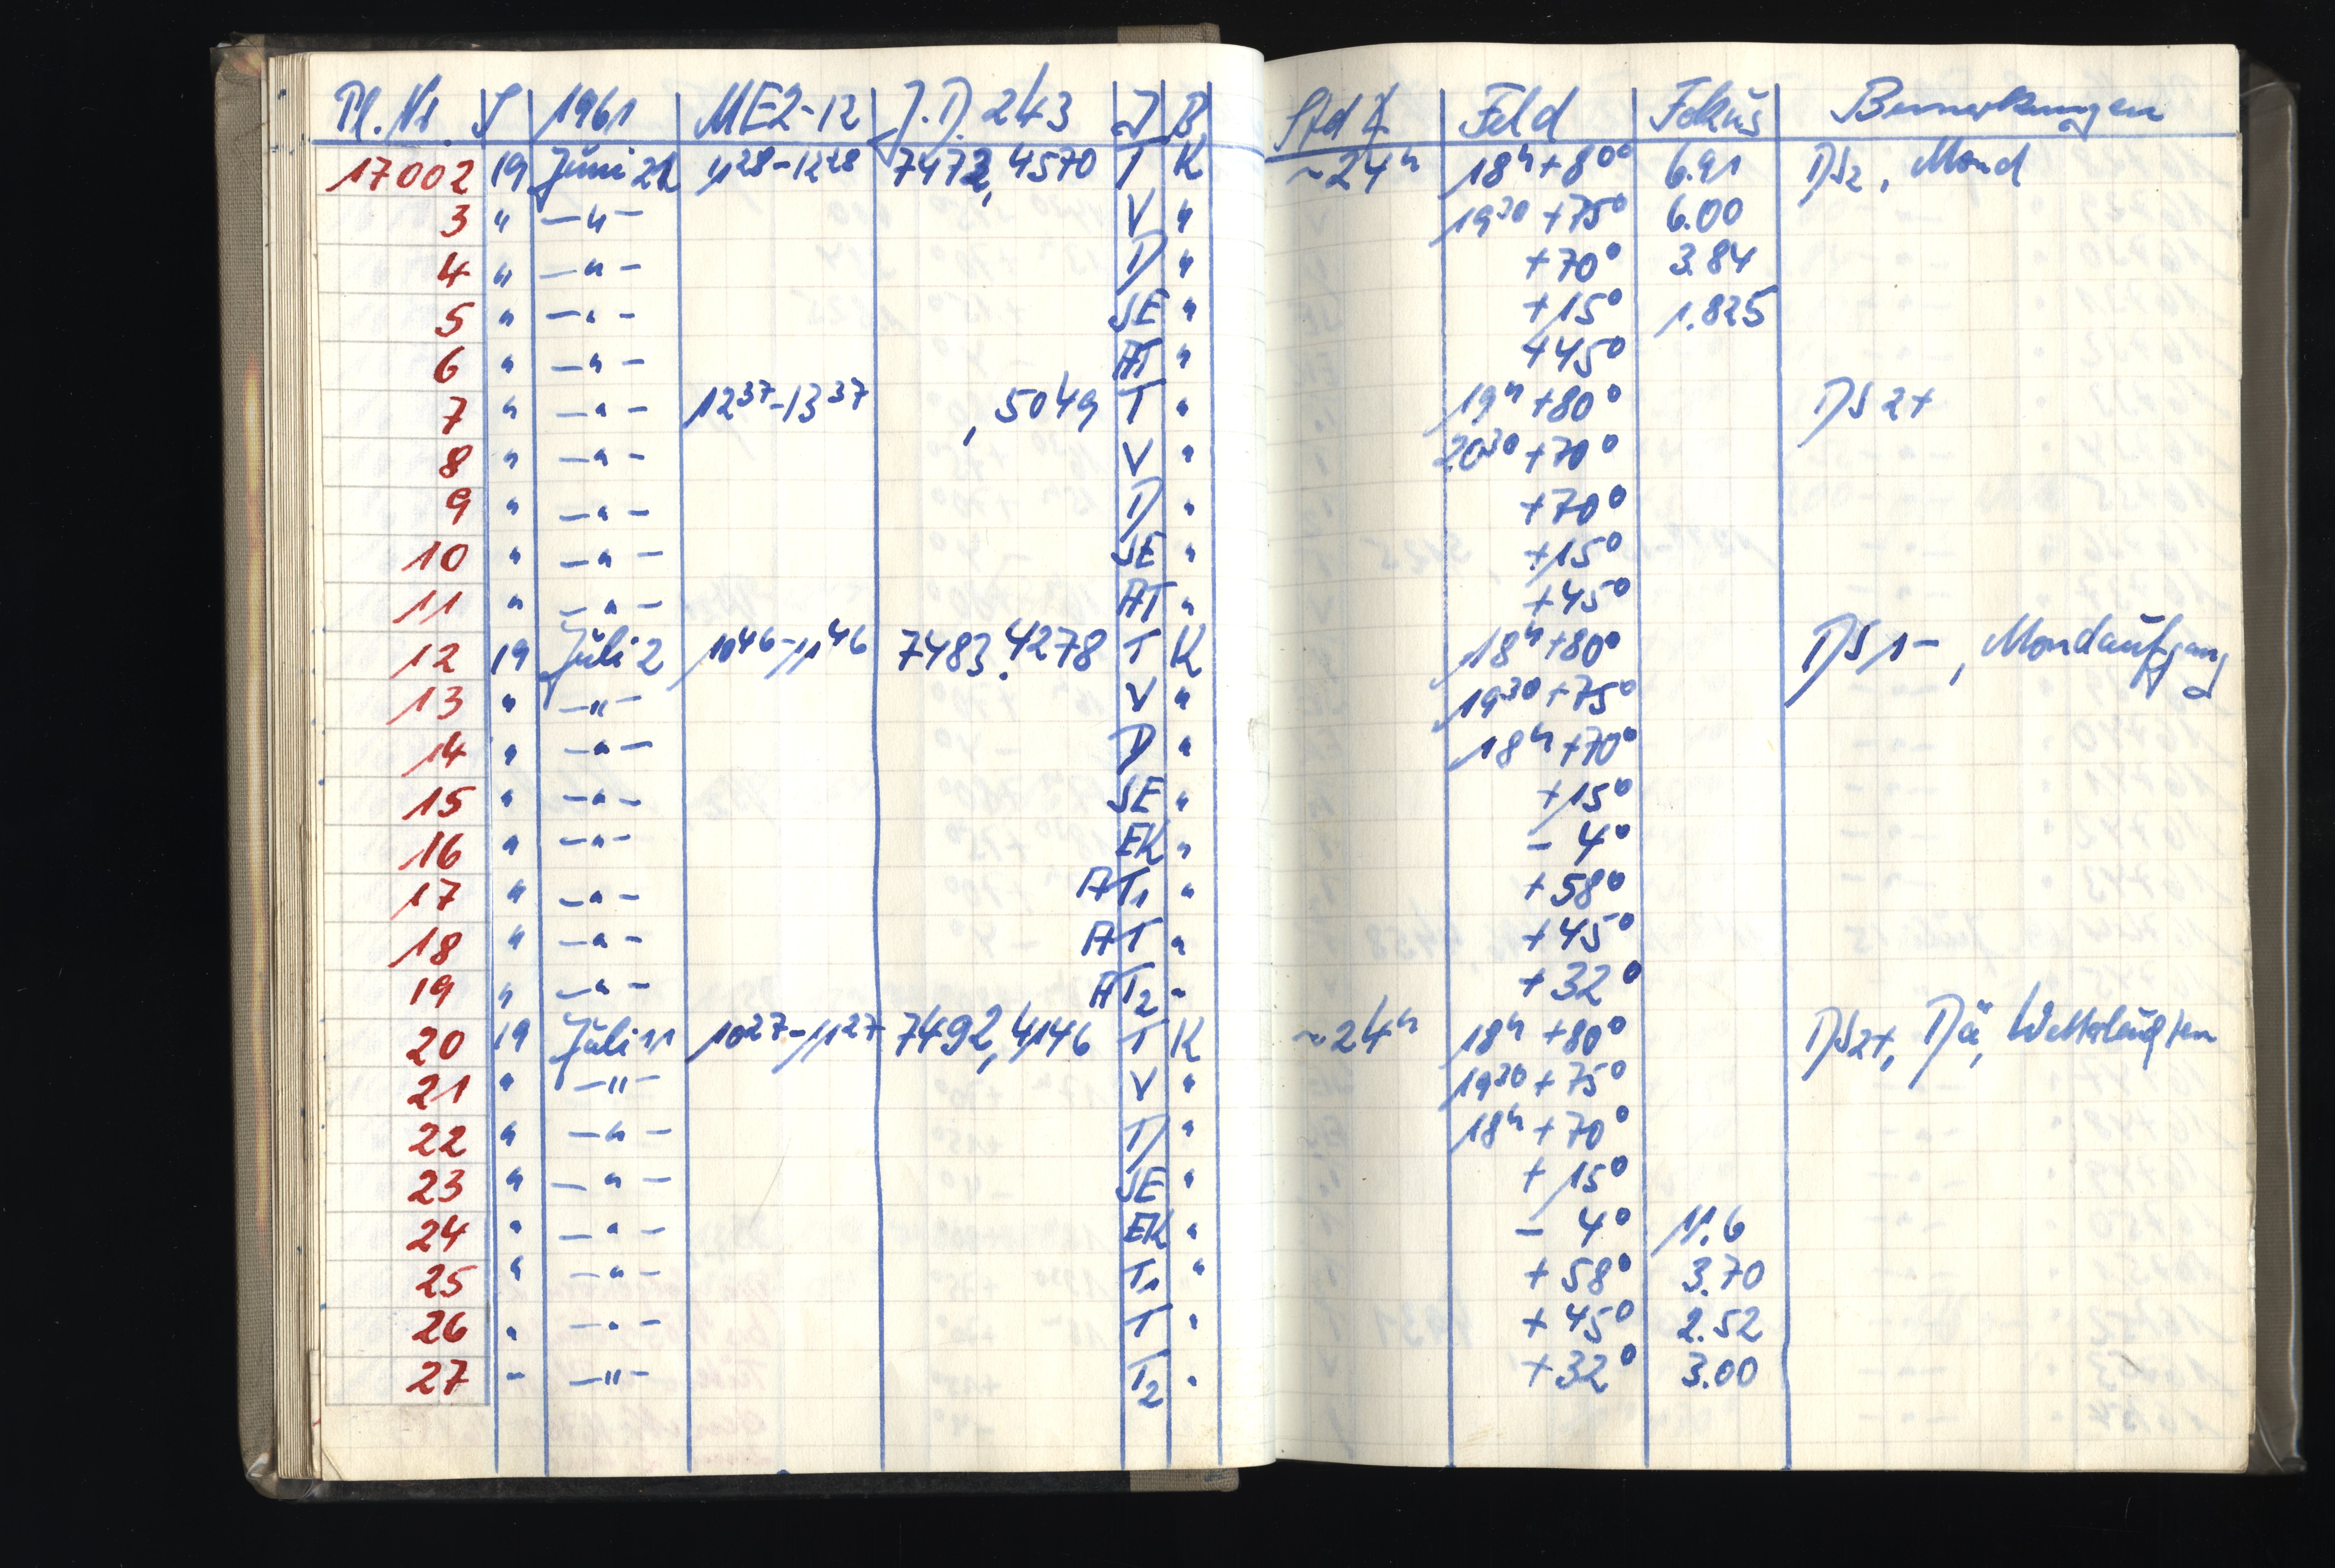 Pl. Nr. S 1961 ME2-12 J.D. 243 J B Std ∡ Feld Fokus Bemerkungen
17002 19 Juni 21 11²⁸-12²⁸ 7472,4570 T K ~24ʰ 18ʰ+80° 6.91 DS2, Mond
3 " -"- V " 19³⁰+75° 6.00
4 " -"- D " +70° 3.84
5 " -"- SE " +15° 1.825
6 " -"- AT " +45°
7 " -"- 12³⁷-13³⁷ ,5049 T " 19ʰ+80° DS2+
8 " -"- V " 20³⁰+70°
9 " -"- D " +70°
10 " -"- SE " +15°
11 " -"- AT " +45°
12 19 Juli 2 10⁴⁶-11⁴⁶ 7483.4278 T K 18ʰ+80° DS1-, Mondaufgang
13 " -"- V " 19³⁰+75°
14 " -"- D " 18ʰ+70°
15 " -"- SE " +15°
16 " -"- EK " -4°
17 " -"- AT1 " +58°
18 " -"- AT " +45°
19 " -"- AT2 " +32°
20 19 Juli 11 10²⁷-11²⁷ 7492,4146 T K ~24ʰ 18ʰ+80° DS2+, Dä, Wetterleuchten
21 " -"- V " 19³⁰+75°
22 " -"- D " 18ʰ+70°
23 " -"- SE " +15°
24 " -"- EK " -4° 11.6
25 " -"- T1 " +58° 3.70
26 " -"- T " +45° 2.52
27 " -"- T2 " +32° 3.00